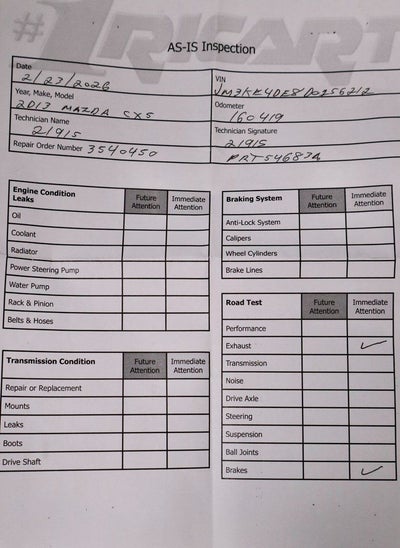 #1 RICART
AS-IS Inspection
Date
2/23/2026
VIN
JM3KE4DE8D0256212
Year, Make, Model
2013 MAZDA CX5
Odometer
160419
Technician Name
21915
Technician Signature
21915
Repair Order Number 3540450
PRT54687A
Engine Condition Leaks Future Attention Immediate Attention
Oil
Coolant
Radiator
Power Steering Pump
Water Pump
Rack & Pinion
Belts & Hoses
Transmission Condition Future Attention Immediate Attention
Repair or Replacement
Mounts
Leaks
Boots
Drive Shaft
Braking System Future Attention Immediate Attention
Anti-Lock System
Calipers
Wheel Cylinders
Brake Lines
Road Test Future Attention Immediate Attention
Performance
Exhaust ✓
Transmission
Noise
Drive Axle
Steering
Suspension
Ball Joints
Brakes ✓